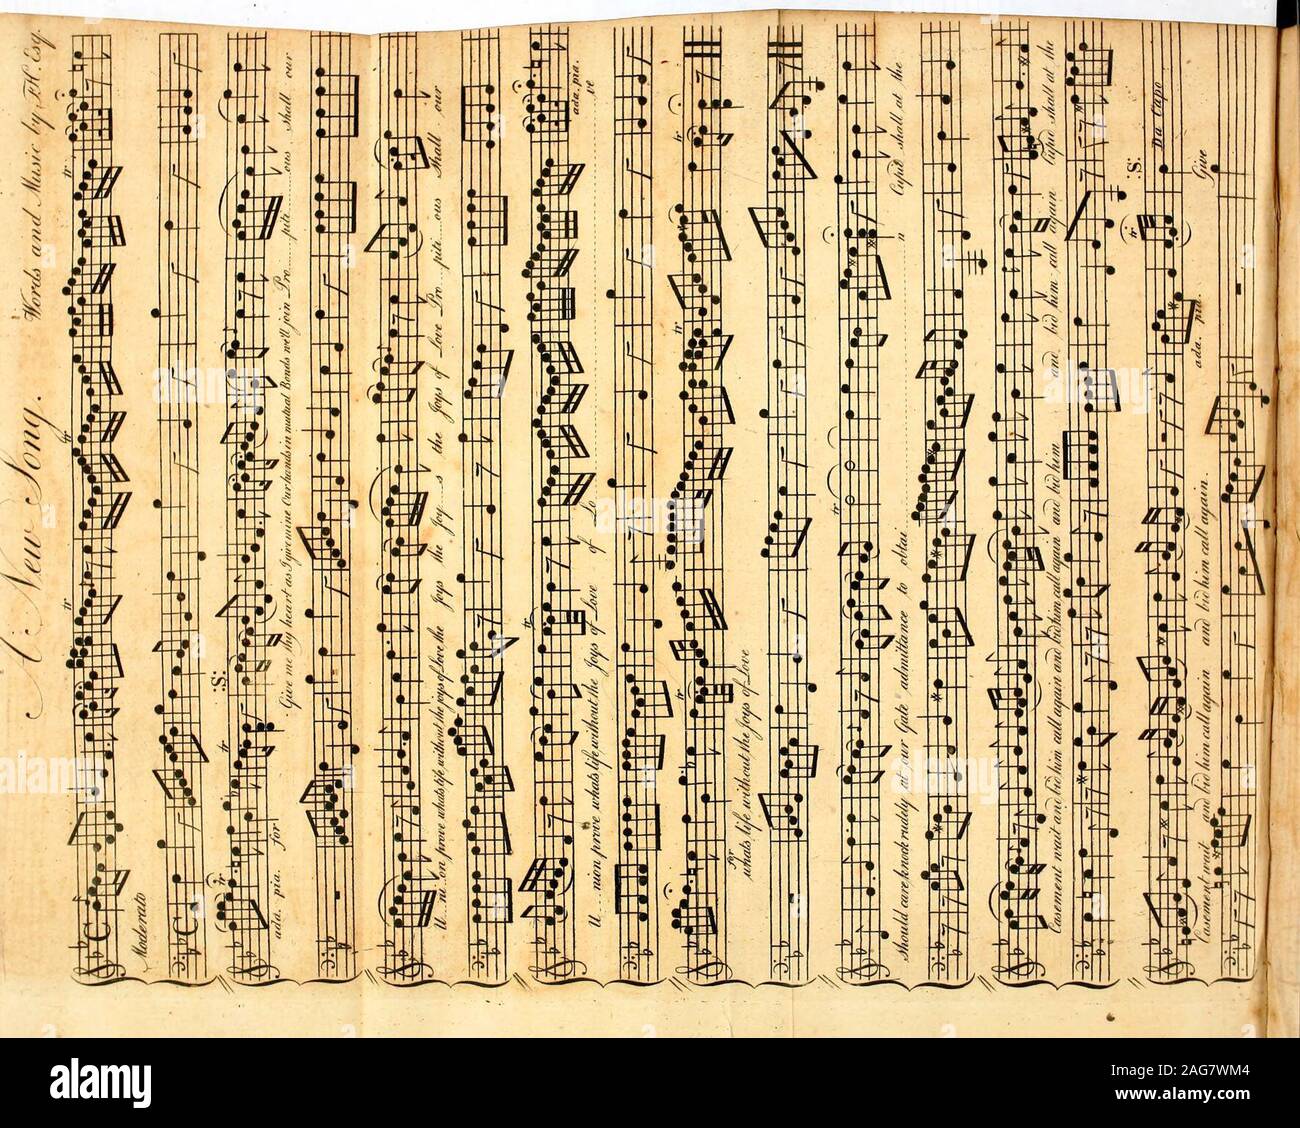 A New Song. Words and Music by, F.H. Esq.
Moderato
tr tr tr
:S:
ada. pia. for
tr
Give me thy heart as I give mine Our hands in mutual Bonds we'll join Pro......pite......ous shall our
U...ni...on prove whats life without the joys of Love the Joys the Joy....s the Joys of Love Pro...pite...ous Shall our
tr
ada. pia.
U...nion prove whats life without the Joys of Love of Lo ve
tr tr tr
for
whats life without the Joys of Love
tr
Should care knock rudely at our Gate admittance to obtai n Cupid shall at the
Casement wait and bid him call again and bid him call again and bid him and bid him call again Cupid shall at the
tr :S:
ada. pia. Da Capo
Casement wait and bid him call again and bid him call again. Give
alamy
Image ID: 2AG7WM4
www.alamy.com